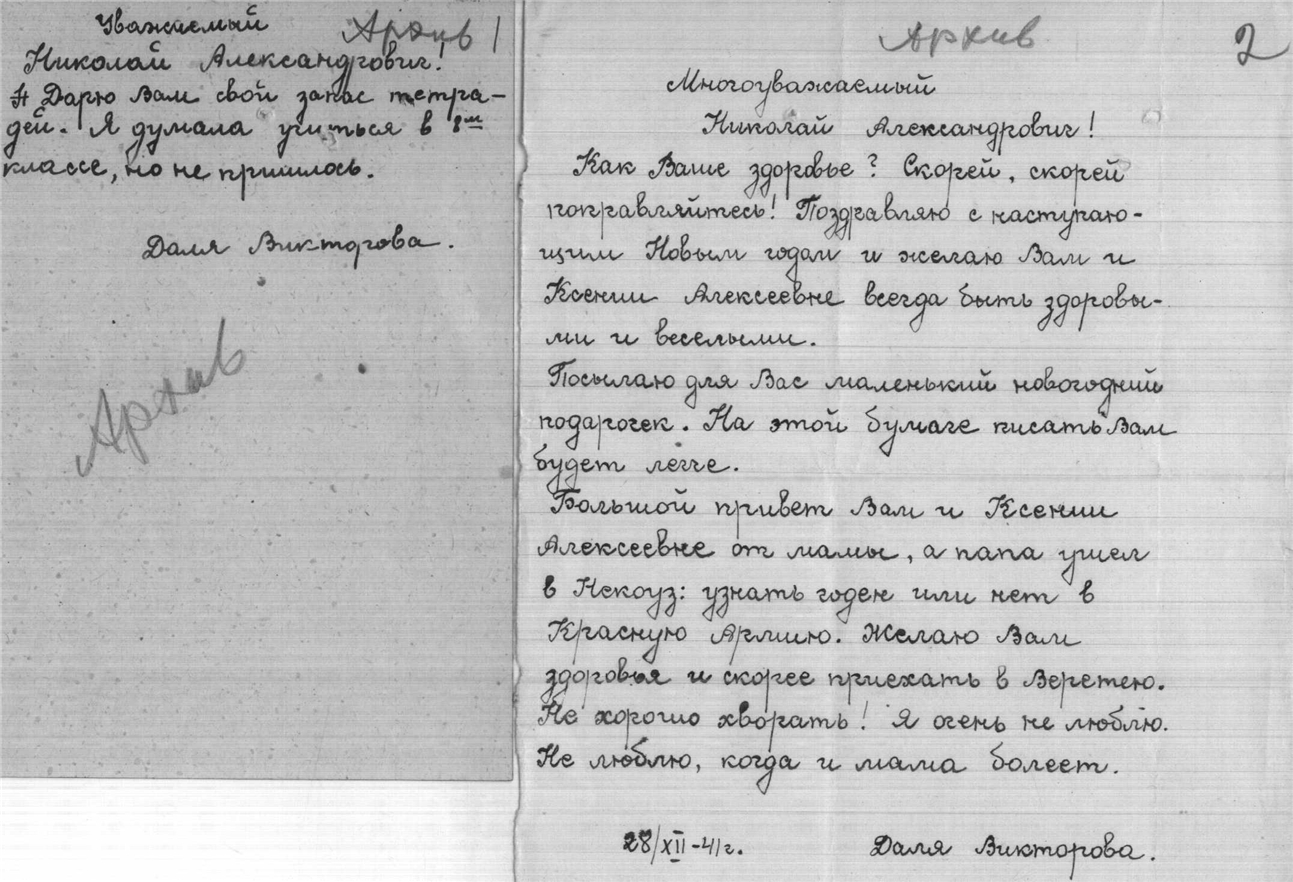 Архив 1
Уважаемый
Николай Александрович!
Дарю Вам свой запас тетра-
дей. Я думала учиться в 8м
классе, но не пришлось.
Даля Викторова.
Архив
Архив 2
Многоуважаемый
Николай Александрович!
Как Ваше здоровье? Скорей, скорей
поправляйтесь! Поздравляю с наступаю-
щим Новым годом и желаю Вам и
Ксении Алексеевне всегда быть здоровы-
ми и веселыми.
Посылаю для Вас маленький новогодний
подарочек. На этой бумаге писать Вам
будет легче.
Большой привет Вам и Ксении
Алексеевне от мамы, а папа ушел
в Некоуз: узнать годен или нет в
Красную Армию. Желаю Вам
здоровья и скорее приехать в Веретею.
Не хорошо хворать! Я очень не люблю.
Не люблю, когда и мама болеет.
28/XII-41г. Даля Викторова.